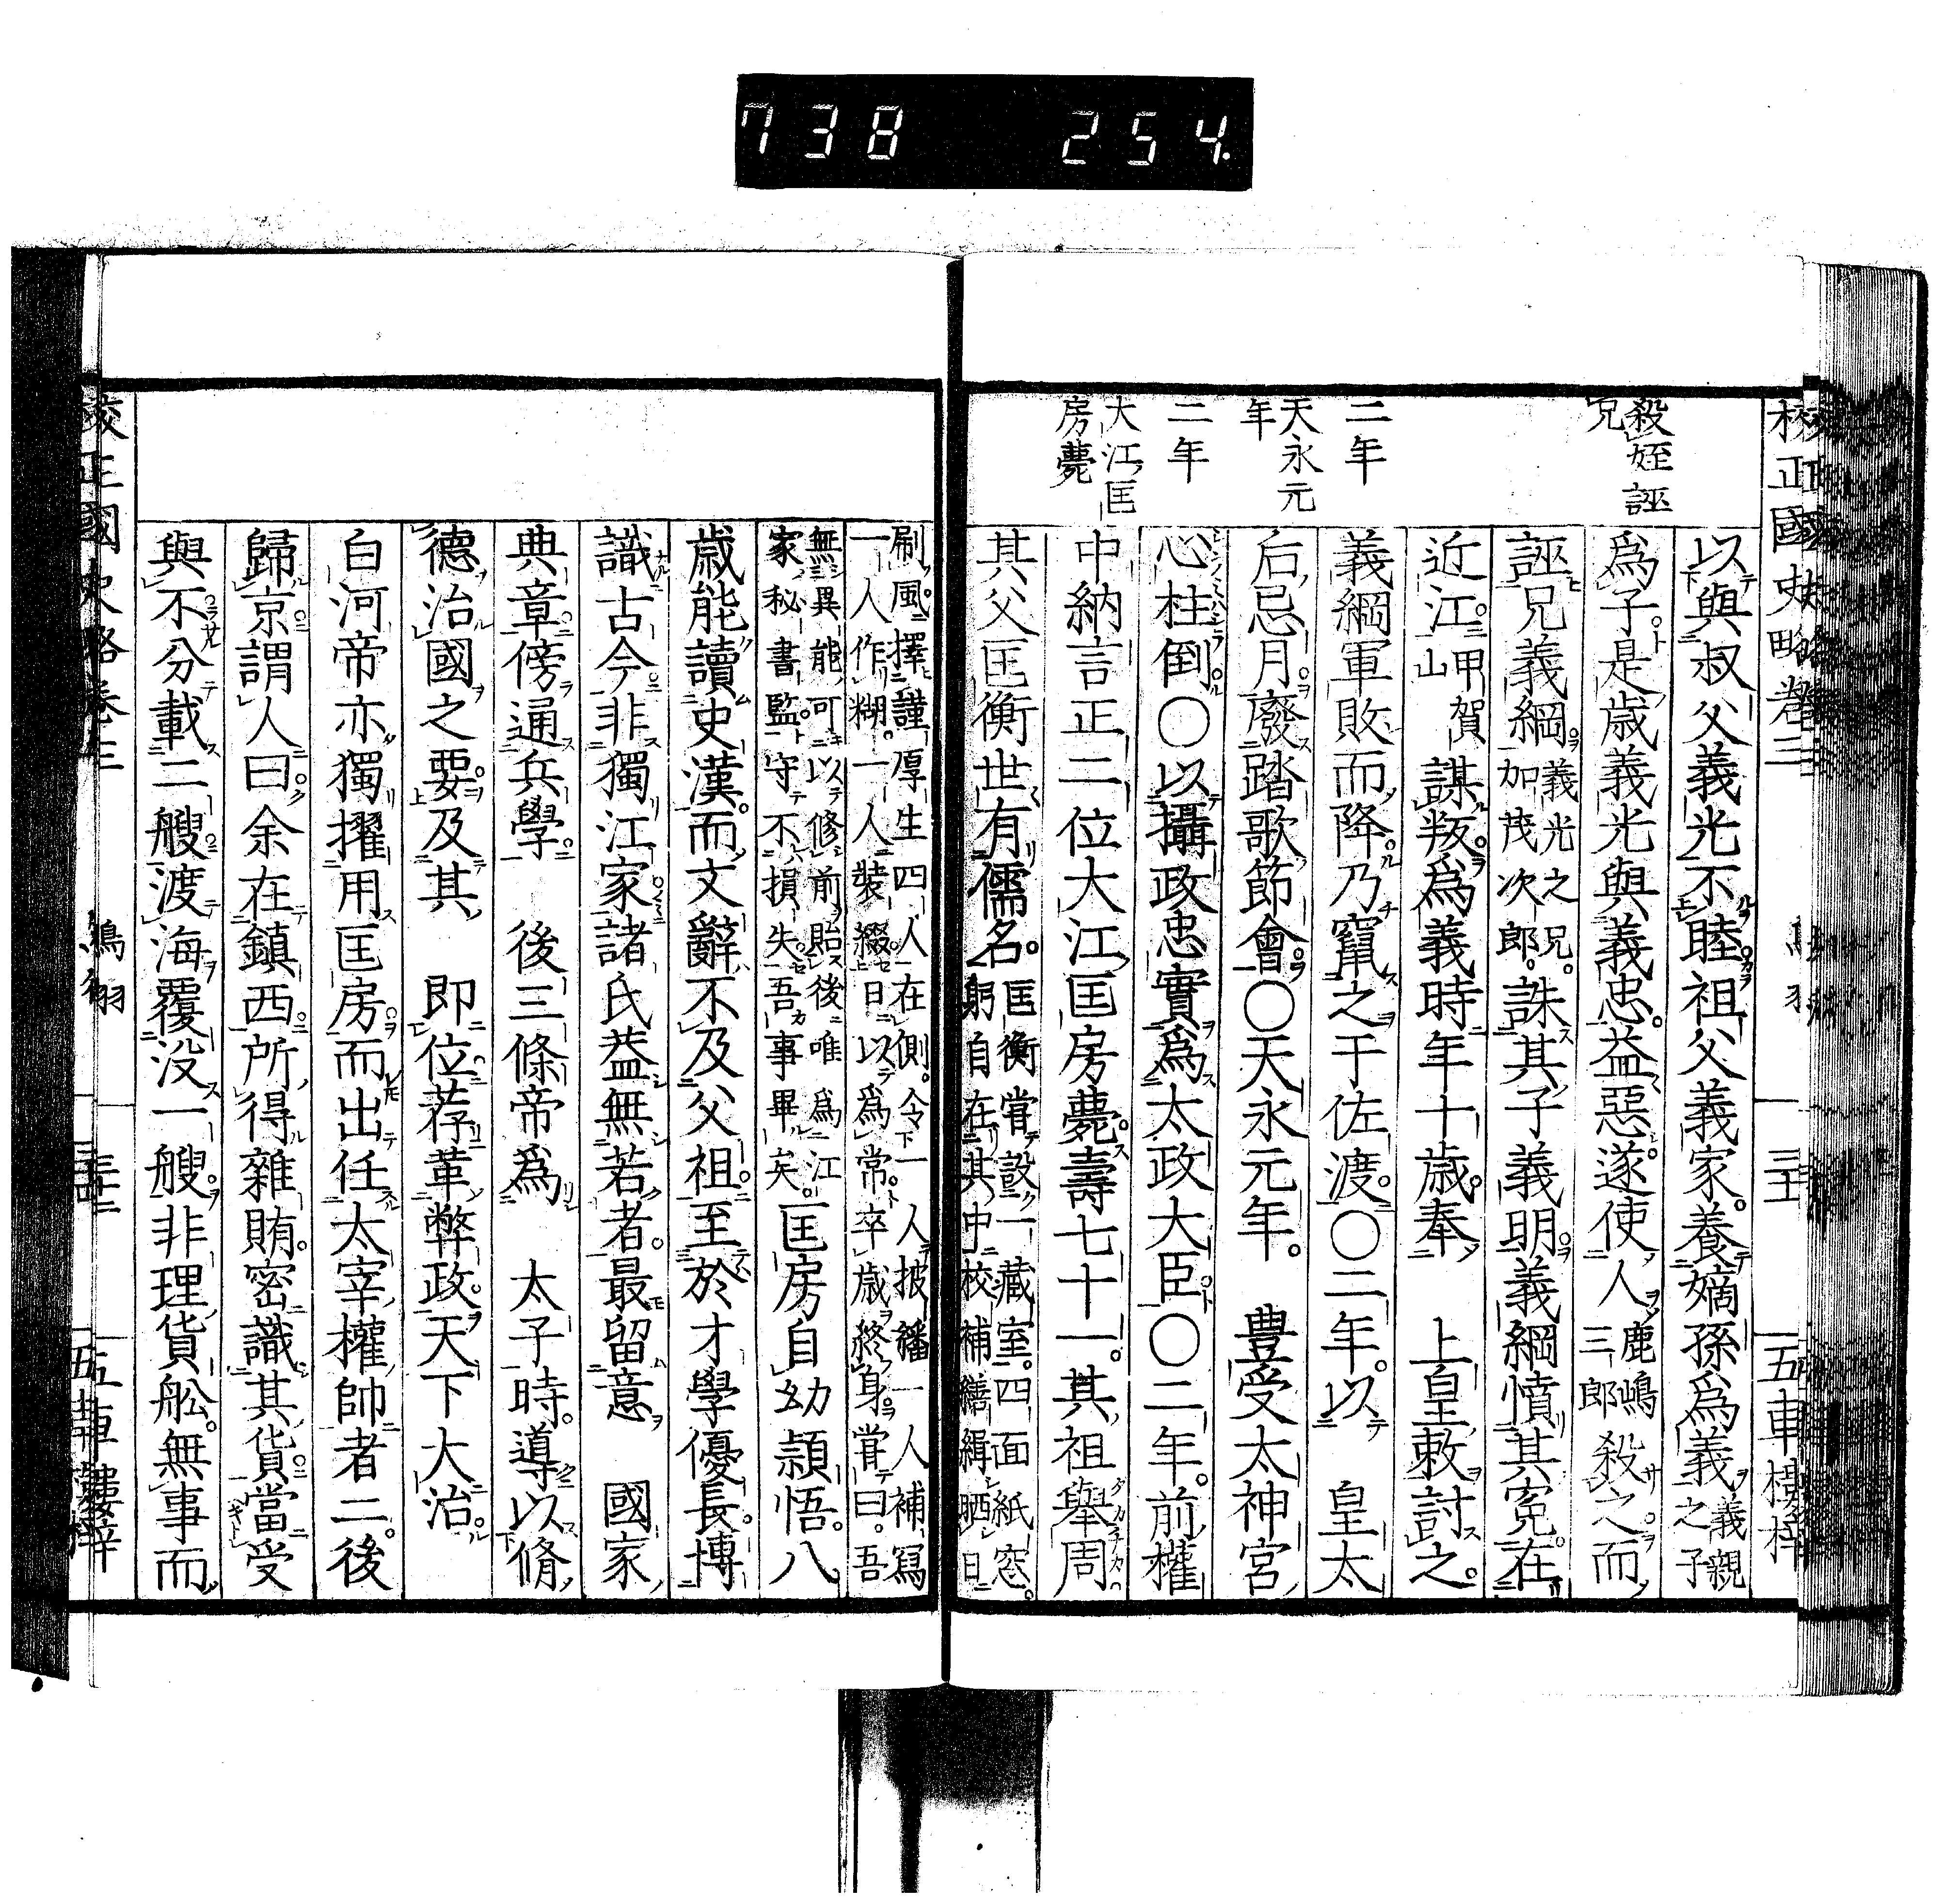 738 254
校正國史略卷三
五車樓梓
殺姪誣
兄
二年
天永元
年
二年
大江匡
房薨
以與叔父義光不睦祖父義家養嫡孫爲義義親之子
爲子是歲義光與義忠益惡遂使人鹿嶋三郎殺之而
誣兄義綱義光之兄加茂次郎誅其子義明義綱憤其冤在
近江甲賀山謀叛爲義時年十歲奉 上皇敕討之
義綱軍敗而降乃竄之于佐渡〇二年以 皇太
后忌月廢踏歌節會〇天永元年 豊受太神宮
心柱倒〇以攝政忠實爲太政大臣〇二年前權
中納言正二位大江匡房薨壽七十一其祖舉周
其父匡衡世有儒名匡衡嘗設一藏室四面紙窓躬自在其中校補繕緝晒日
刷風擇謹厚生四人在側令一人披繙一人補寫一人作糊一人裝綴日以爲常卒歲終身嘗曰吾
無異能可以修前貽後唯爲江家秘書監守不損失吾事畢矣匡房自幼頴悟八
歲能讀史漢而文辭不及父祖至於才學優長博
識古今非獨江家諸氏益無若者最留意 國家
典章傍通兵學 後三條帝爲 太子時導以脩
德治國之要及其 即位荐革弊政天下大治
白河帝亦獨擢用匡房而出任太宰權帥者二後
歸京謂人曰余在鎮西所得雜賄密識其貨當受
與不分載二艘渡海覆没一艘非理貨舩無事而
校正國史略卷三
鳥羽
五車樓梓